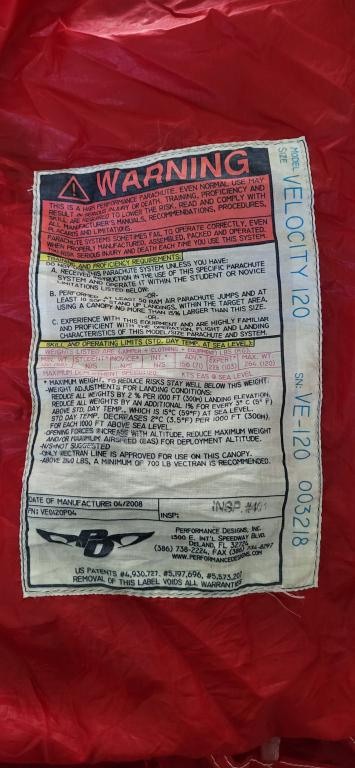 WARNING
THIS IS A HIGH PERFORMANCE PARACHUTE. EVEN NORMAL USE MAY
RESULT IN SERIOUS INJURY OR DEATH. TRAINING, PROFICIENCY AND
SKILL ARE REQUIRED TO LOWER THE RISK. READ AND COMPLY WITH
ALL MANUFACTURER'S MANUALS, RECOMMENDATIONS, PROCEDURES,
PLACARDS AND LIMITATIONS.
PARACHUTE SYSTEMS SOMETIMES FAIL TO OPERATE CORRECTLY, EVEN
WHEN PROPERLY MANUFACTURED, ASSEMBLED, PACKED AND OPERATED.
YOU RISK SERIOUS INJURY AND DEATH EACH TIME YOU USE THIS SYSTEM.
TRAINING AND PROFICIENCY REQUIREMENTS:
DO NOT USE THIS PARACHUTE SYSTEM UNLESS YOU HAVE:
A. RECEIVED INSTRUCTION IN THE USE OF THIS SPECIFIC PARACHUTE
SYSTEM AND OPERATE IT WITHIN THE STUDENT OR NOVICE
LIMITATIONS LISTED BELOW;
-OR-
B. PERFORMED AT LEAST 50 RAM AIR PARACHUTE JUMPS AND AT
LEAST 10 STAND LANDINGS, WITHIN THE TARGET AREA,
USING A CANOPY NO MORE THAN 15% LARGER THAN THIS SIZE.
-OR-
C. EXPERIENCE WITH THIS EQUIPMENT AND ARE HIGHLY FAMILIAR
AND PROFICIENT WITH THE OPERATION, FLIGHT AND LANDING
CHARACTERISTICS OF THIS MODEL/SIZE PARACHUTE AND SYSTEM.
SKILL AND OPERATING LIMITS (STD. DAY TEMP. AT SEA LEVEL):
WEIGHTS LISTED ARE (JUMPER + CLOTHING + EQUIPMENT) LBS (KGS).
MIN. WT. STUDENT NOVICE INT. ADV. EXPERT MAX. WT.
N/S N/S N/S 156 (71) 228 (103) 264 (120)
MAXIMUM DEPLOYMENT SPEED KTS EAS @ SEA LEVEL
* MAXIMUM WEIGHT, TO REDUCE RISKS STAY WELL BELOW THIS WEIGHT.
WEIGHT ADJUSTMENTS FOR LANDING CONDITIONS:
REDUCE ALL WEIGHTS BY 2 % PER 1000 FT (300m) LANDING ELEVATION.
REDUCE ALL WEIGHTS BY AN ADDITIONAL 1% FOR EVERY 3° C (5° F)
ABOVE STD. DAY TEMP., WHICH IS 15°C (59°F) AT SEA LEVEL.
STD DAY TEMP. DECREASES 2°C (3.5°F) PER 1000 FT (300m).
FOR EACH 1000 FT ABOVE SEA LEVEL.
-OPENING FORCES INCREASE WITH ALTITUDE, REDUCE MAXIMUM WEIGHT
AND/OR MAXIMUM AIRSPEED (EAS) FOR DEPLOYMENT ALTITUDE.
-N/S=NOT SUGGESTED
-ONLY VECTRAN LINE IS APPROVED FOR USE ON THIS CANOPY.
-ABOVE 240 LBS, A MINIMUM OF 700 LB VECTRAN IS RECOMMENDED.
DATE OF MANUFACTURE: 04/2008
PN: VE0120P04
INSP: INSP. #401
PD
PERFORMANCE DESIGNS, INC.
1300 E. INT'L SPEEDWAY BLVD.
DELAND, FL 32724
(386) 738-2224, FAX (386) 734-8297
WWW.PERFORMANCEDESIGNS.COM
US PATENTS #4,930,727, #5,197,696, #5,573,207
REMOVAL OF THIS LABEL VOIDS ALL WARRANTIES
MODEL VELOCITY 120
SIZE
SN: VE-120 003218